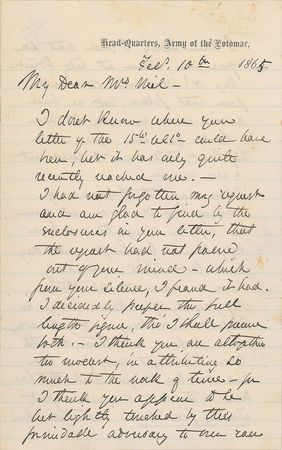 Head-Quarters, Army of the Potomac,
Feby. 10th 1865.
My Dear Mrs Neil -
I don't know where your
letter of the 15th ulto. could have
been, but it has only quite
recently reached me. -
I had not forgotten my request
and am glad to find by the
enclosures in your letter, that
the request had not passed
out of your mind - which
from your silence, I feared it had.
I decidedly prefer the full
length figure, tho I shall
both. - I think you are altogether
too modest, in attributing so
much to the work of time - for
I think you appear to be
but lightly touched by this
formidable adversary to our race